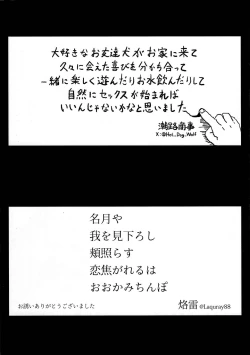 大好きなお友達犬がお家に来て
久々に会えた喜びを分かち合って
一緒に楽しく遊んだりお水飲んだりして
自然にセックスが始まれば
いいんじゃないかなと思いました
潮路商事
X:@Hot_Dog_Wolf
名月や
我を見下ろし
頬照らす
恋焦がれるは
おおかみちんぽ
お誘いありがとうございました
烙雷 @Laquray88